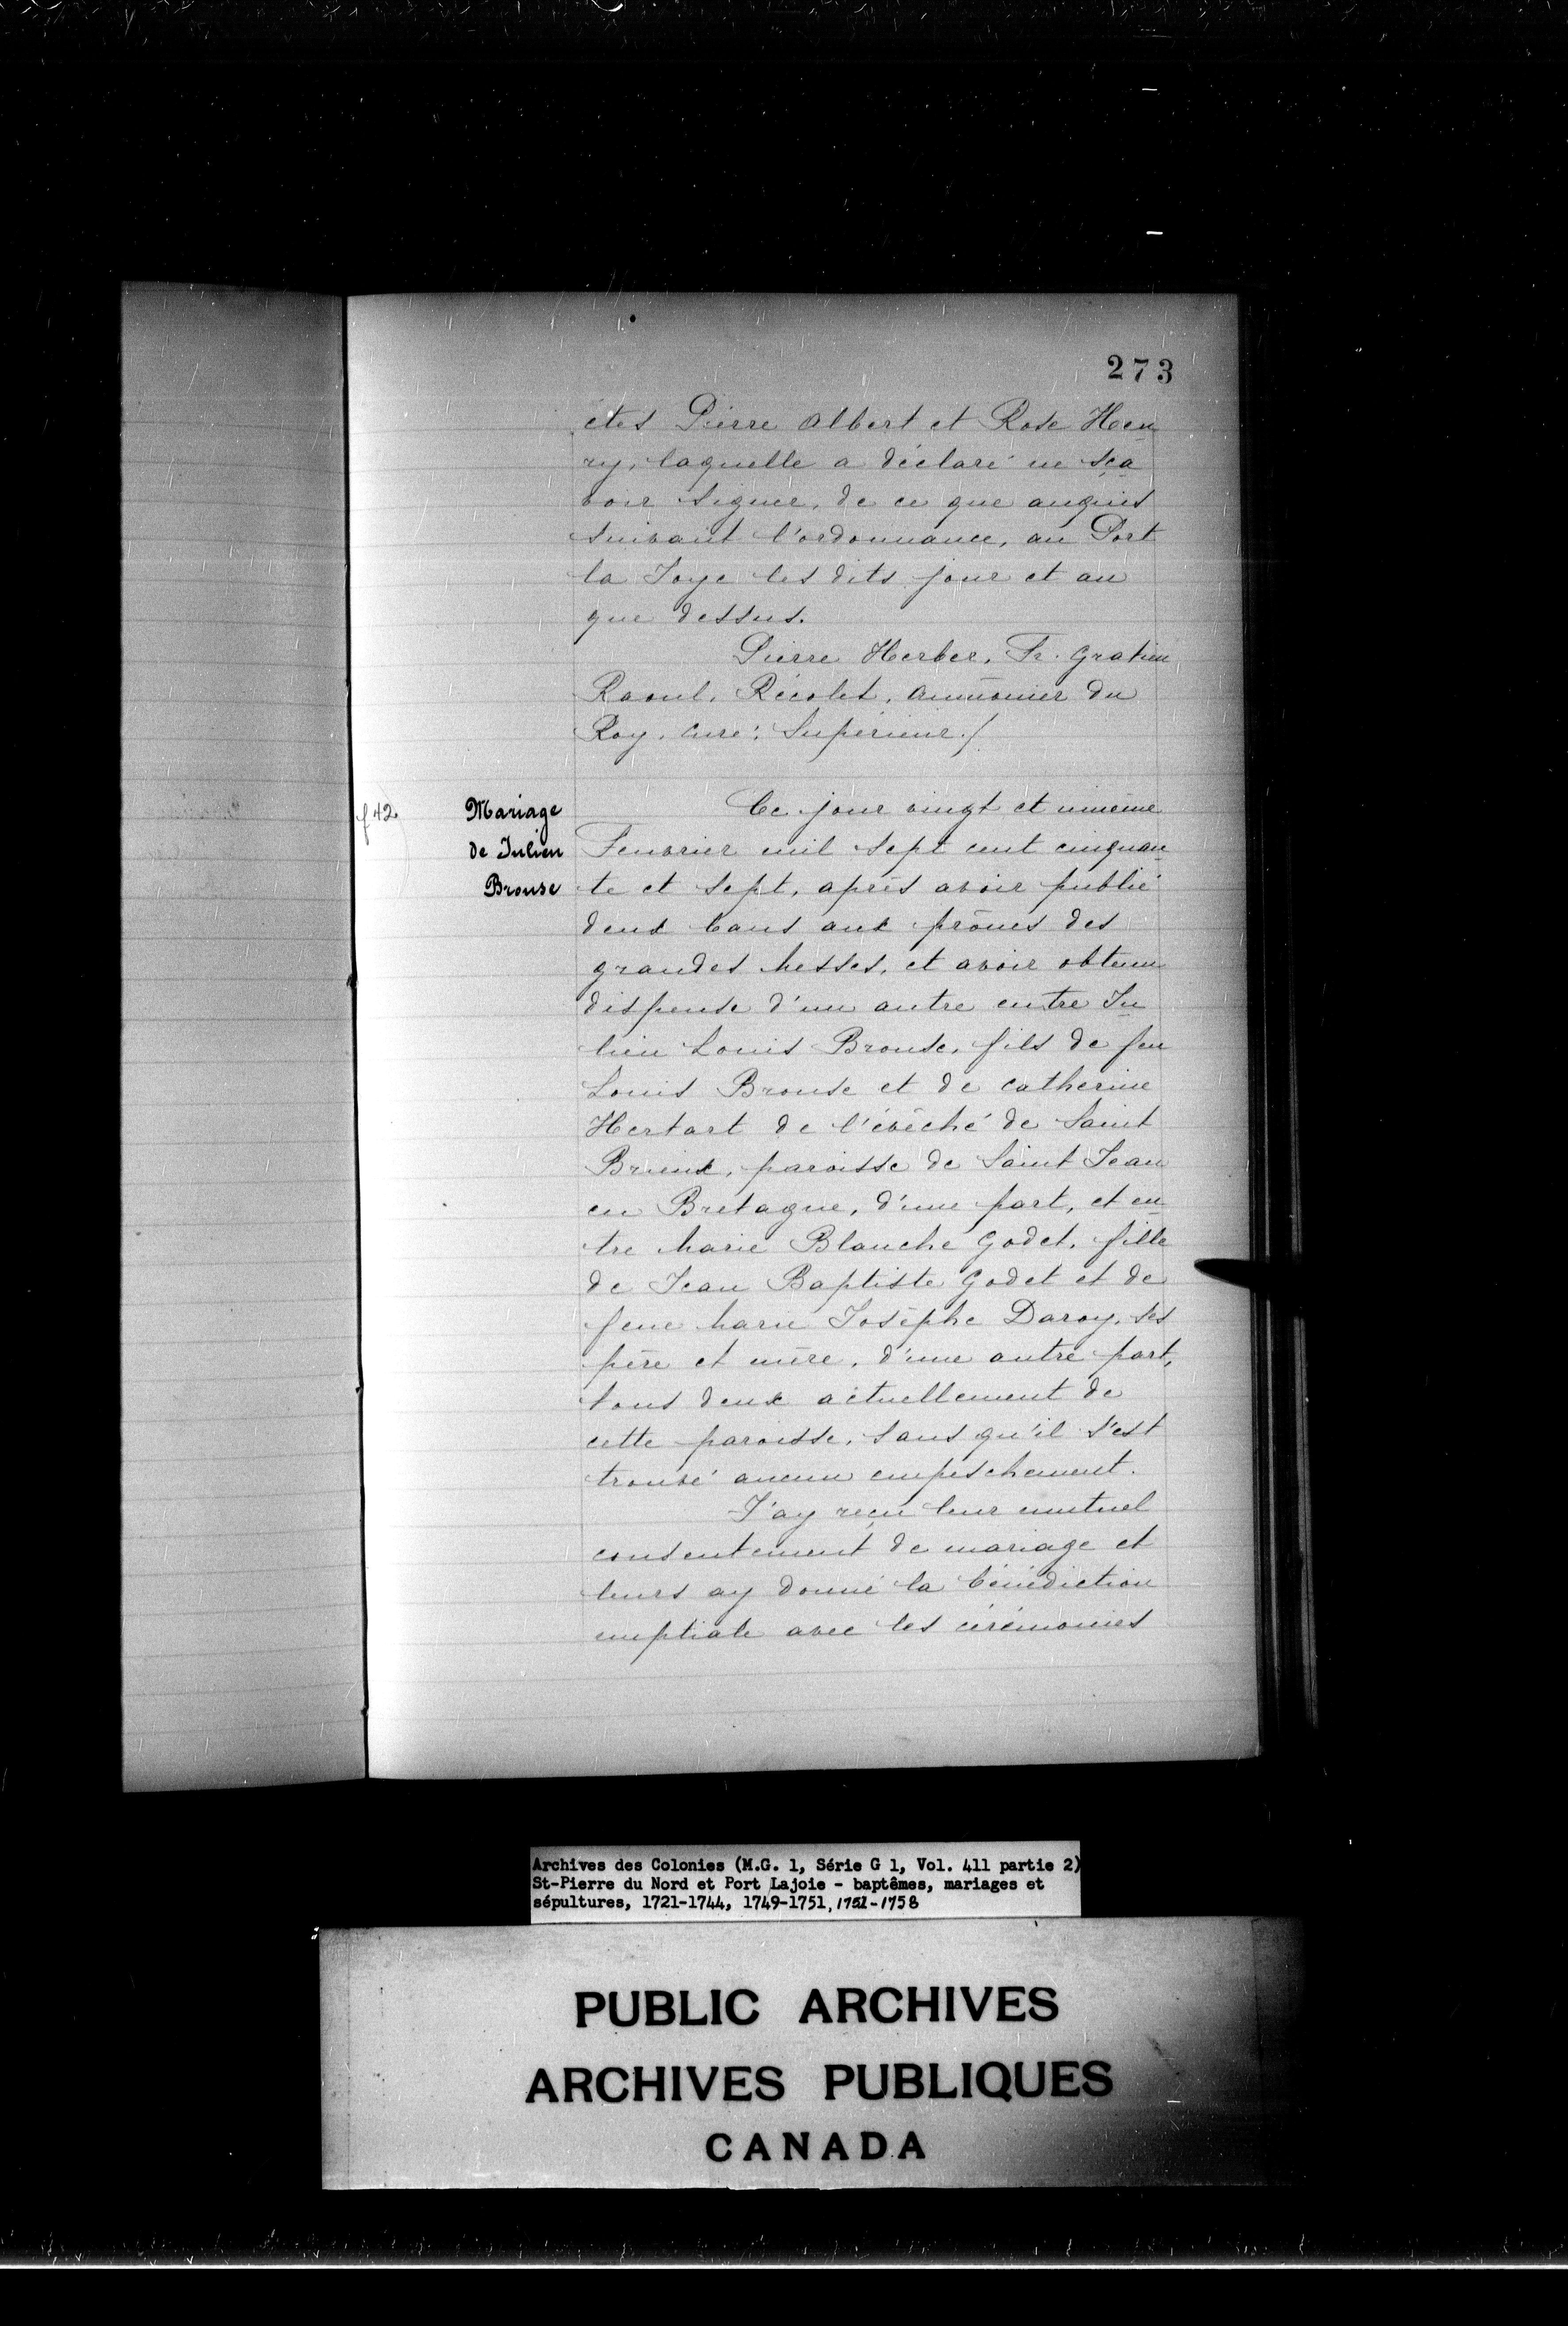 273
etes Pierre Albert et Rose Hen
ry, laquelle a déclaré ne sça
voir signer, de ce que enquis
suivant l'ordonnance, au Port
la Joye les dits jour et an
que dessus.
Pierre Herber, Fr. Gratien
Raoul, Récolet, aumônier du
Roy, curé, Supérieur./
f 42
Mariage
de Julien
Brouse
Ce jour vingt et unième
Feuvrier mil sept cent cinquan
te et sept, après avoir publié
deux bans aux prônes des
grandes Messes, et avoir obtenu
dispense d'un autre entre Ju
lien Louis Brouse, fils de feu
Louis Brouse et de catherine
Hertart de l'évêché de Saint
Brieux, paroisse de Saint Jean
en Bretagne, d'une part, et en
tre Marie Blanche Godet, fille
de Jean Baptiste Godet et de
feue Marie Josèphe Daroy, ses
père et mère, d'une autre part,
tous deux actuellement de
cette paroisse, sans qu'il s'est
trouvé aucun empeschement.
J'ay reçu leur mutuel
consentement de mariage et
leurs ay donné la bénédiction
nuptiale avec les cérémonies
Archives des Colonies (M.G. 1, Série G 1, Vol. 411 partie 2)
St-Pierre du Nord et Port Lajoie - baptêmes, mariages et
sépultures, 1721-1744, 1749-1751, 1751-1758
PUBLIC ARCHIVES
ARCHIVES PUBLIQUES
CANADA